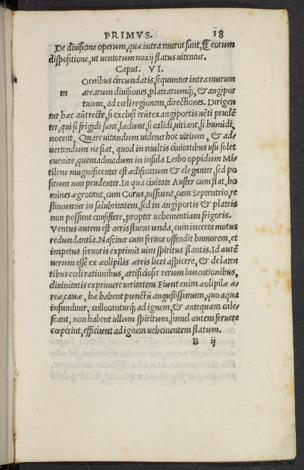 PRIMVS. 18
De diuisione operum, quæ intra muros sunt, & eorum
dispositione, ut uentorum noxij flatus uitentur.
Caput. VI.
m Oenibus circundatis, sequuntur intra murum
arearum diuisiones, platearumq;, & angipor
tuum, ad cœli regionem, directiones. Dirigen
tur hæc aũt recte, si exclusi erũt ex angiportis uẽti prudẽ
ter, qui si frigidi sunt, lædunt, si calidi, uitiant, si humidi,
nocent, Quare uitandum uidetur hoc uitium, & ad-
uertendum ne fiat, quod in multis ciuitatibus usu solet
euenire, quemadmodum in insula Lesbo oppidum Mi
tilenæ magnificenter est ædificatum & eleganter, sed po
situm non prudenter. In qua ciuitate Auster cum flat, ho
mines ægrotant, cum Corus, tussiunt, cum Septentrio, re
stituuntur in salubritatem, sed in angiportis & plateis
non possunt consistere, propter uehementiam frigoris.
Ventus autem est aeris fluens unda, cum incerta motus
redundantia. Nascitur cum feruor offendit humorem, et
impetus feruoris exprimit uim spiritus flantis. Id autẽ
uerum esse ex æolipilis æreis licet aspicere, & de laten
tibus cœli rationibus, artificiosis rerum inuentionibus,
diuinitatis exprimere ueritatem. Fiunt enim æolipilæ æ-
reæ, cauæ, hæ habent punctũ angustissimum, quo aqua
infunditur, collocanturq; ad ignem, & antequam cales-
cant, non habent ullum spiritum, simul autem feruere
cœperint, efficiunt ad ignem uehementem flatum.
B ij